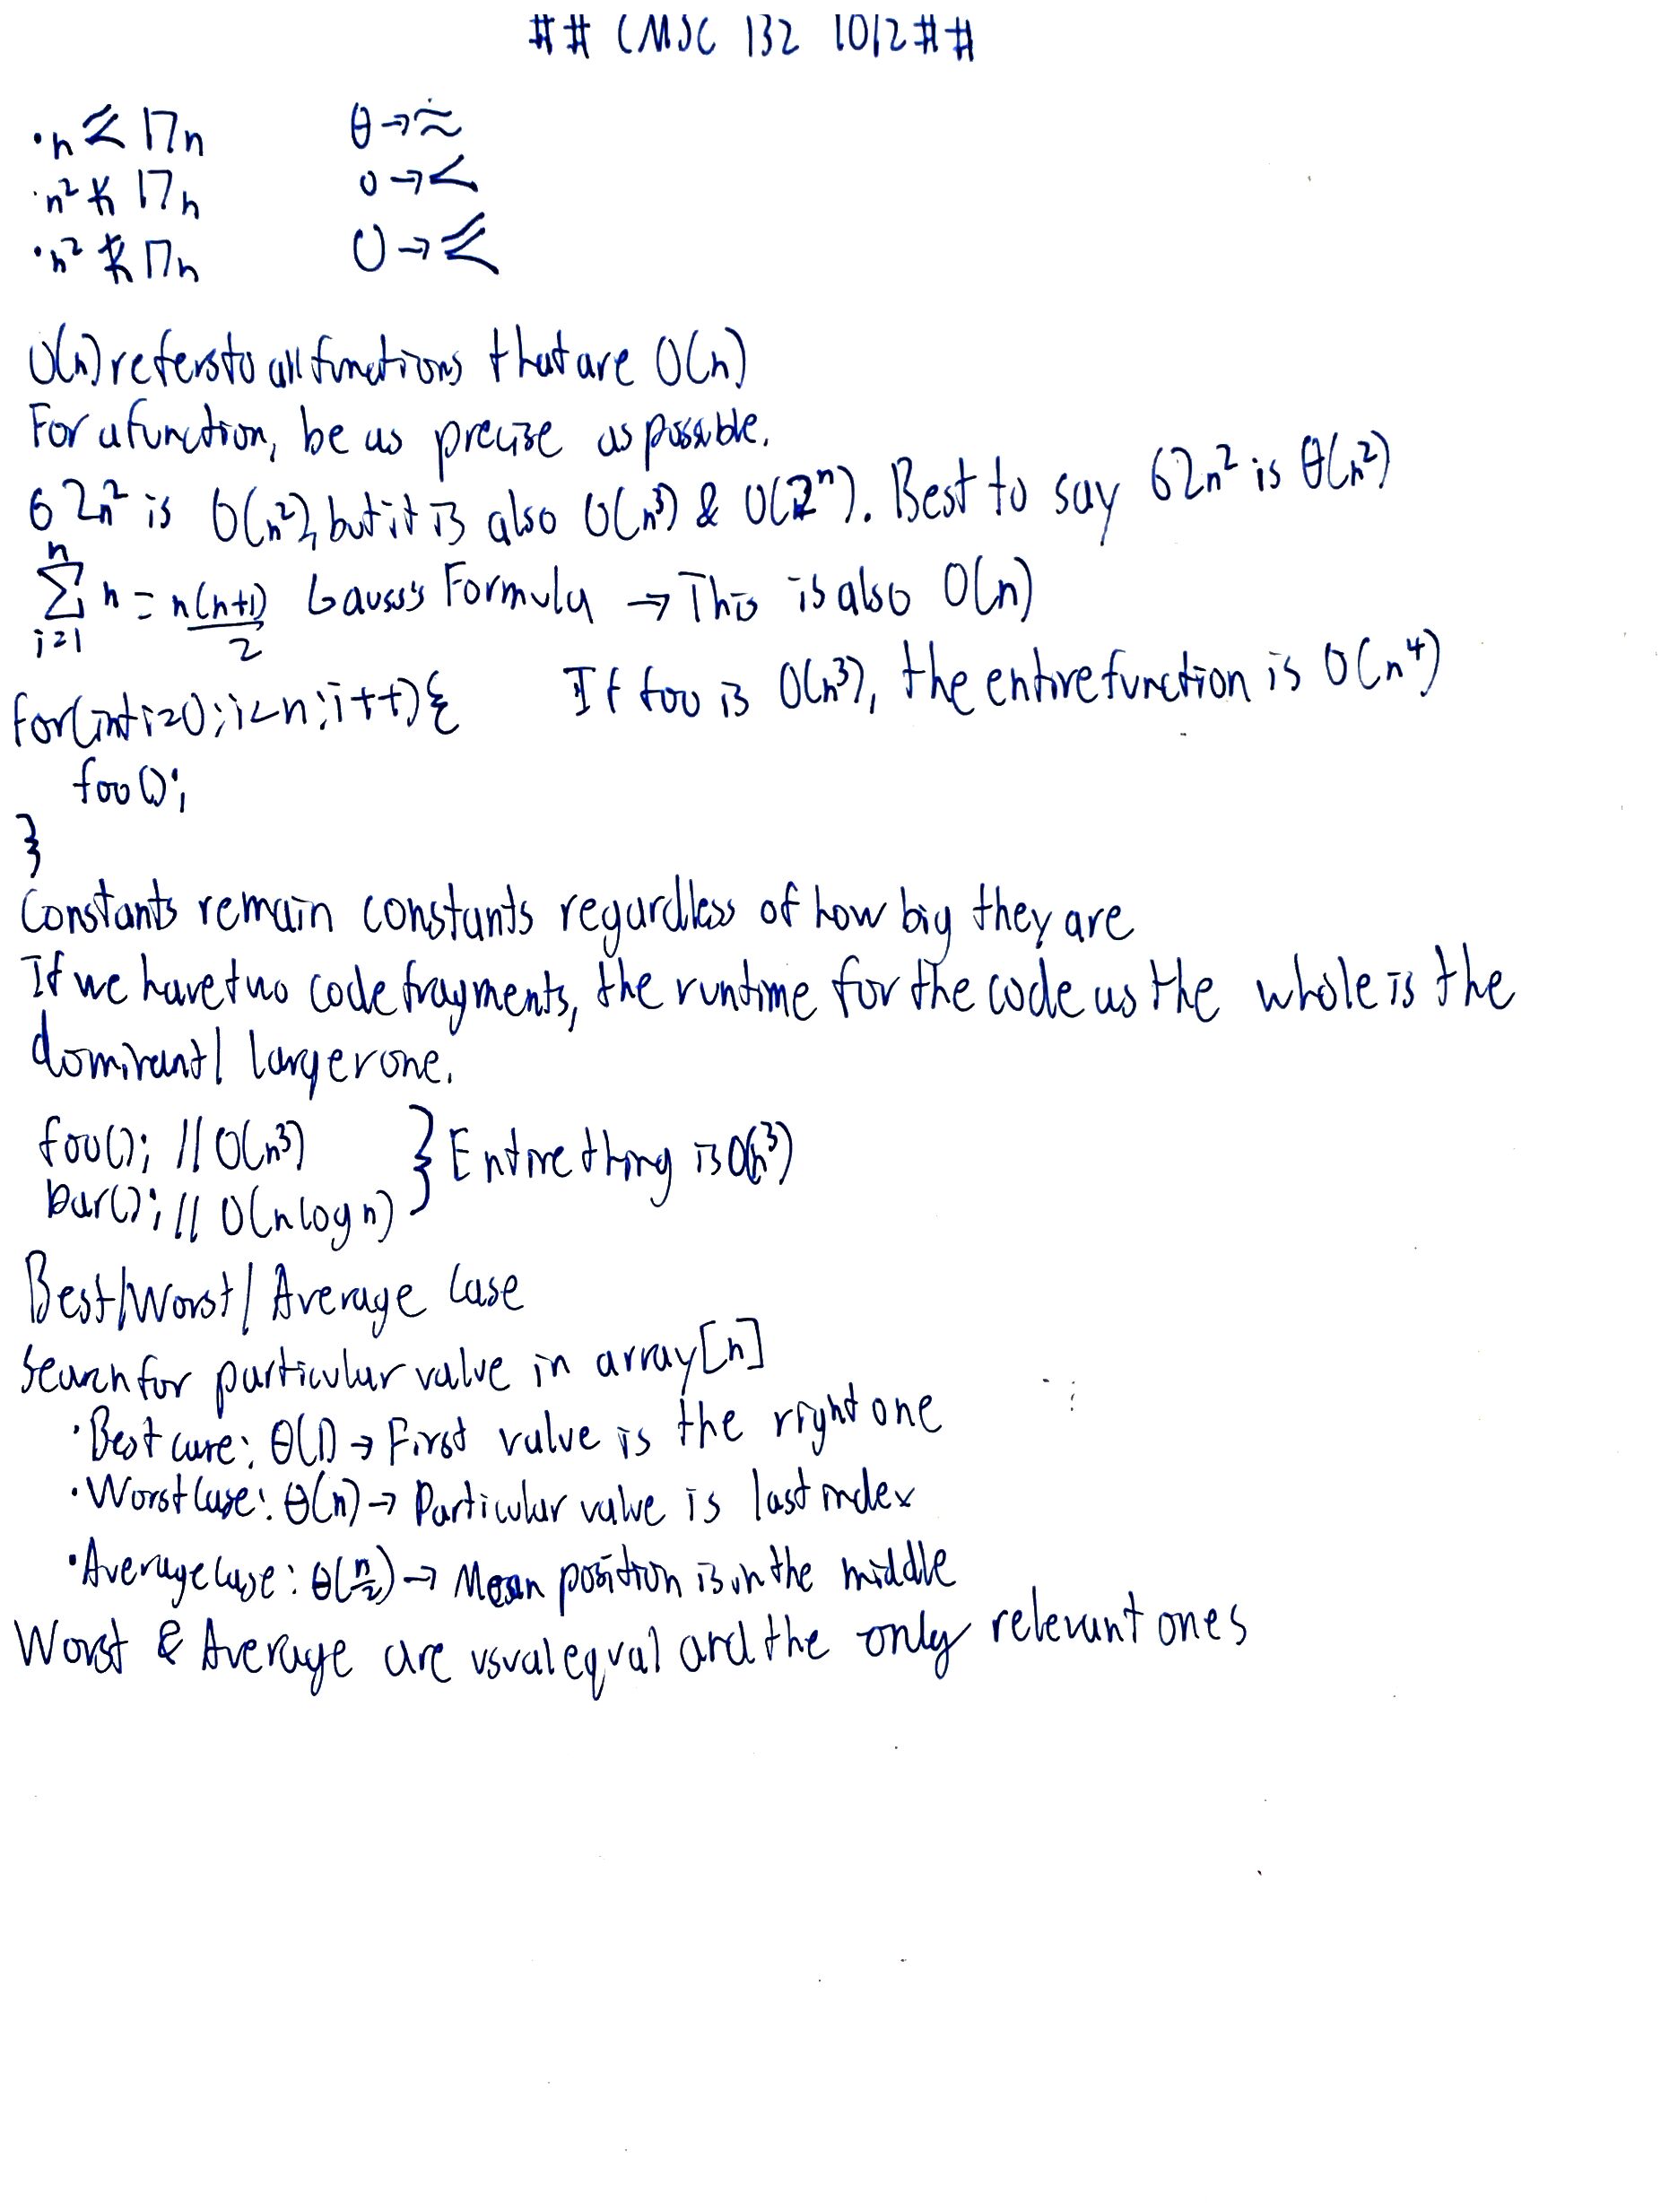 ## CMSC 132 10/2##
·n ⪝ 17n θ→≈
·n² ≮ 17n o→<
·n² ⪝̸ 17n O→⪝
O(n) refers to all functions that are O(n)
For a function, be as precise as possible.
62n² is O(n²), but it is also O(n³) & O(2ⁿ). Best to say 62n² is θ(n²)
∑ᵢ₌₁ⁿ n = n(n+1)/2 Gauss's Formula → This is also O(n)
for(int i=0;i<n;i++){ If foo is O(n³), the entire function is O(n⁴)
foo();
}
Constants remain constants regardless of how big they are
If we have two code fragments, the runtime for the code as the whole is the
dominant/ larger one.
foo(); // O(n³) } Entire thing is O(n³)
bar(); // O(n log n)
Best/Worst/Average Case
Search for particular value in array[n]
·Best case: θ(1) → First value is the right one
·Worst Case: θ(n) → Particular value is last index
·Average Case: θ(n/2) → Mean position is in the middle
Worst & Average are usual equal and the only relevant ones